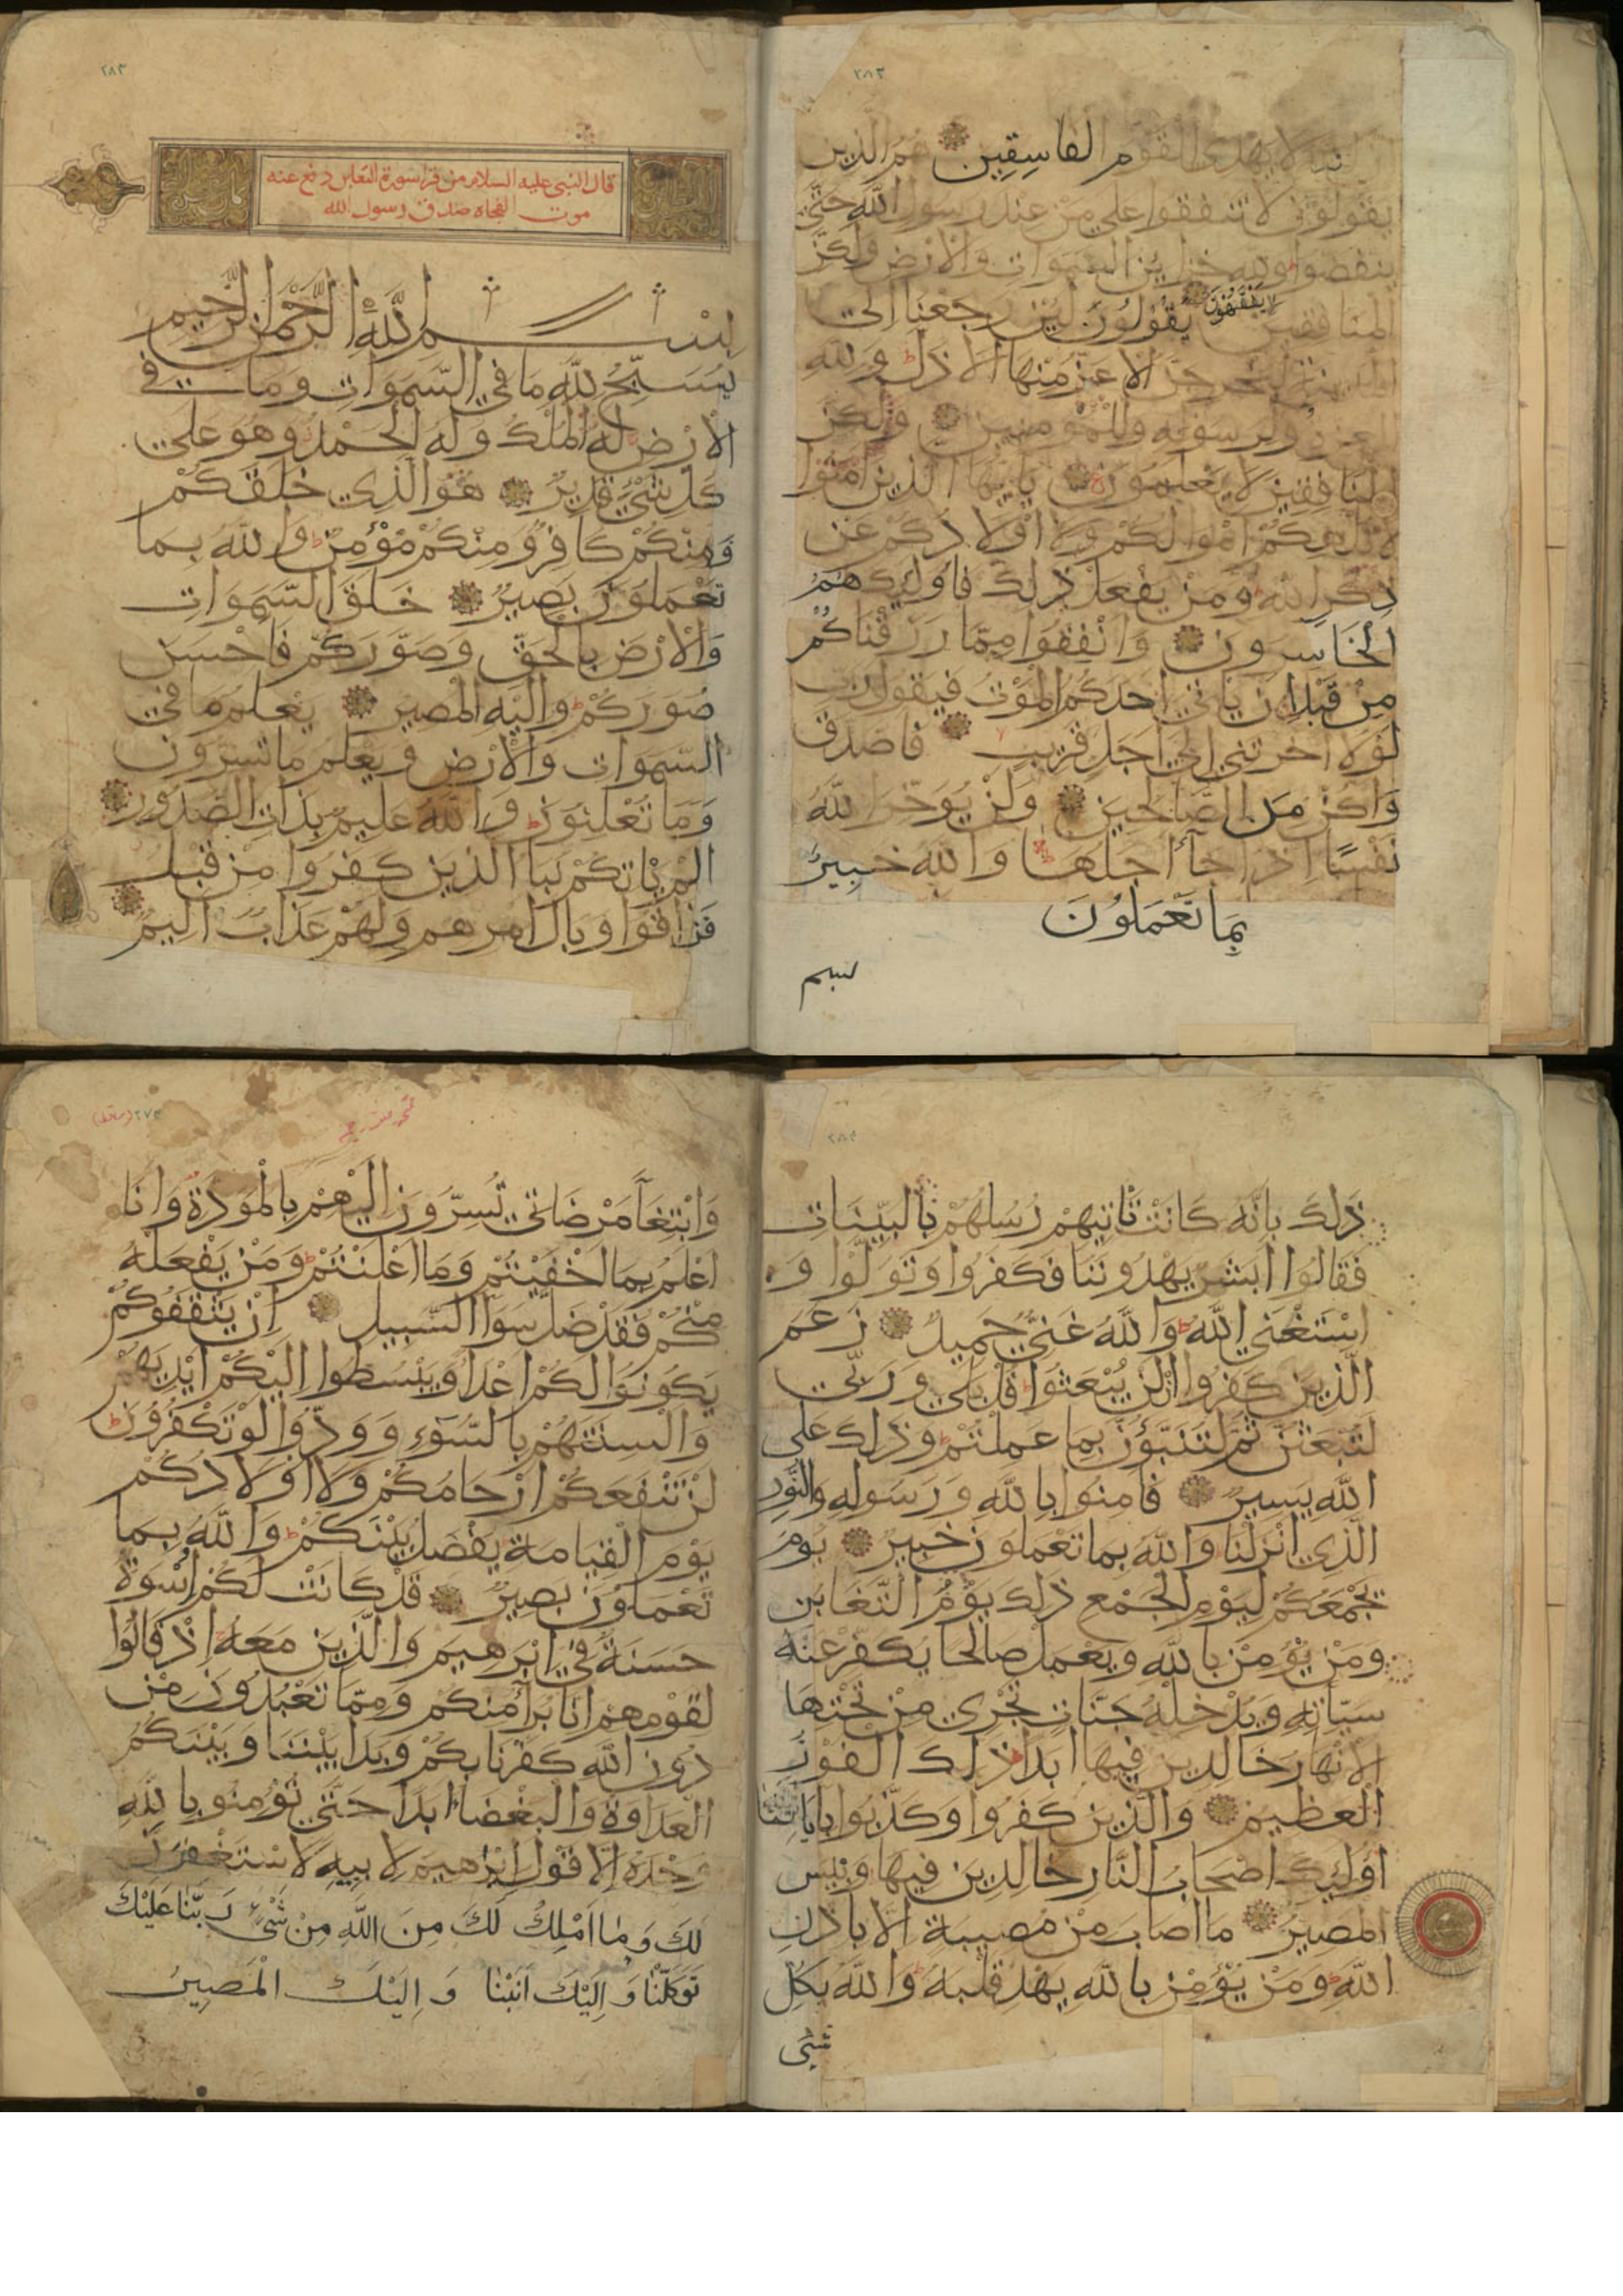 ٢٨٢
لا يهدى القوم الفاسقين هم الذين
يقولون لا تنفقوا على من عند رسول الله حتى
ينفضوا ولله خزاين السموات والارض ولكن
المنافقين لا يفقهون يقولون لين رجعنا الى
المدينة ليخرجن الاعز منها الاذل ولله
العزة ولرسوله وللمومنين ولكن
المنافقين لا يعلمون يايها الذين امنوا
لا تلهكم اموالكم ولا اولادكم عن
ذكر الله ومن يفعل ذلك فاوليك هم
الخاسرون وانفقوا مما رزقناكم
من قبل ان ياتي احدكم الموت فيقول رب
لولا اخرتني الى اجل قريب فاصدق
واكن من الصالحين ولن يوخر الله
نفسا اذا جآ اجلها والله خبير
بما تعملون
بسم
٢٨٣
قال النبى عليه السلام من قرا سورة التغابن دفع عنه
موت الفجاه صدق رسول الله
بسم الله الرحمن الرحيم
يسبح لله ما في السموات وما في
الارض له الملك وله الحمد وهو على
كل شيء قدير هو الذي خلقكم
فمنكم كافر ومنكم مؤمن والله بما
تعملون بصير خلق السموات
والارض بالحق وصوركم فاحسن
صوركم واليه المصير يعلم ما في
السموات والارض ويعلم ما تسرون
وما تعلنون والله عليم بذات الصدور
الم ياتكم نبا الذين كفروا من قبل
فذاقوا وبال امرهم ولهم عذاب اليم
٢٨٤
ذلك بانه كانت تاتيهم رسلهم بالبينات
فقالوا ابشر يهدوننا فكفروا وتولوا و
استغني الله والله غني حميد زعم
الذين كفروا ان لن يبعثوا قل بلى وربي
لتبعثن ثم لتنبؤن بما عملتم وذلك على
الله يسير فامنوا بالله ورسوله والنور
الذي انزلنا والله بما تعملون خبير يوم
يجمعكم ليوم الجمع ذلك يوم التغابن
ومن يؤمن بالله ويعمل صالحا يكفر عنه
سيئاته ويدخله جنات تجري من تحتها
الانهار خالدين فيها ابدا ذلك الفوز
العظيم والذين كفروا وكذبوا باياتنا
اوليك اصحاب النار خالدين فيها وبيس
المصير ما اصاب من مصيبة الا باذن
الله ومن يؤمن بالله يهد قلبه والله بكل
شيى
٢٧٣
وابتغآ مرضاتي تسرون اليهم بالمودة وانا
اعلم بما اخفيتم وما اعلنتم ومن يفعله
منكم فقد ضل سوآ السبيل ان يثقفوكم
يكونوا لكم اعدا ويبسطوا اليكم ايديهم
والسنتهم بالسوء وودوا لو تكفرون
لن تنفعكم ارحامكم ولا اولادكم
يوم القيامة يفصل بينكم والله بما
تعملون بصير قد كانت لكم اسوة
حسنة في ابرهيم والذين معه اذ قالوا
لقومهم انا برآ منكم ومما تعبدون من
دون الله كفرنا بكم وبدا بيننا وبينكم
العداوة والبغضا ابدا حتى تؤمنوا بالله
وحده الا قول ابرهيم لابيه لاستغفرن
لك وما املك لك من الله من شيء ربنا عليك
توكلنا واليك انبنا واليك المصير